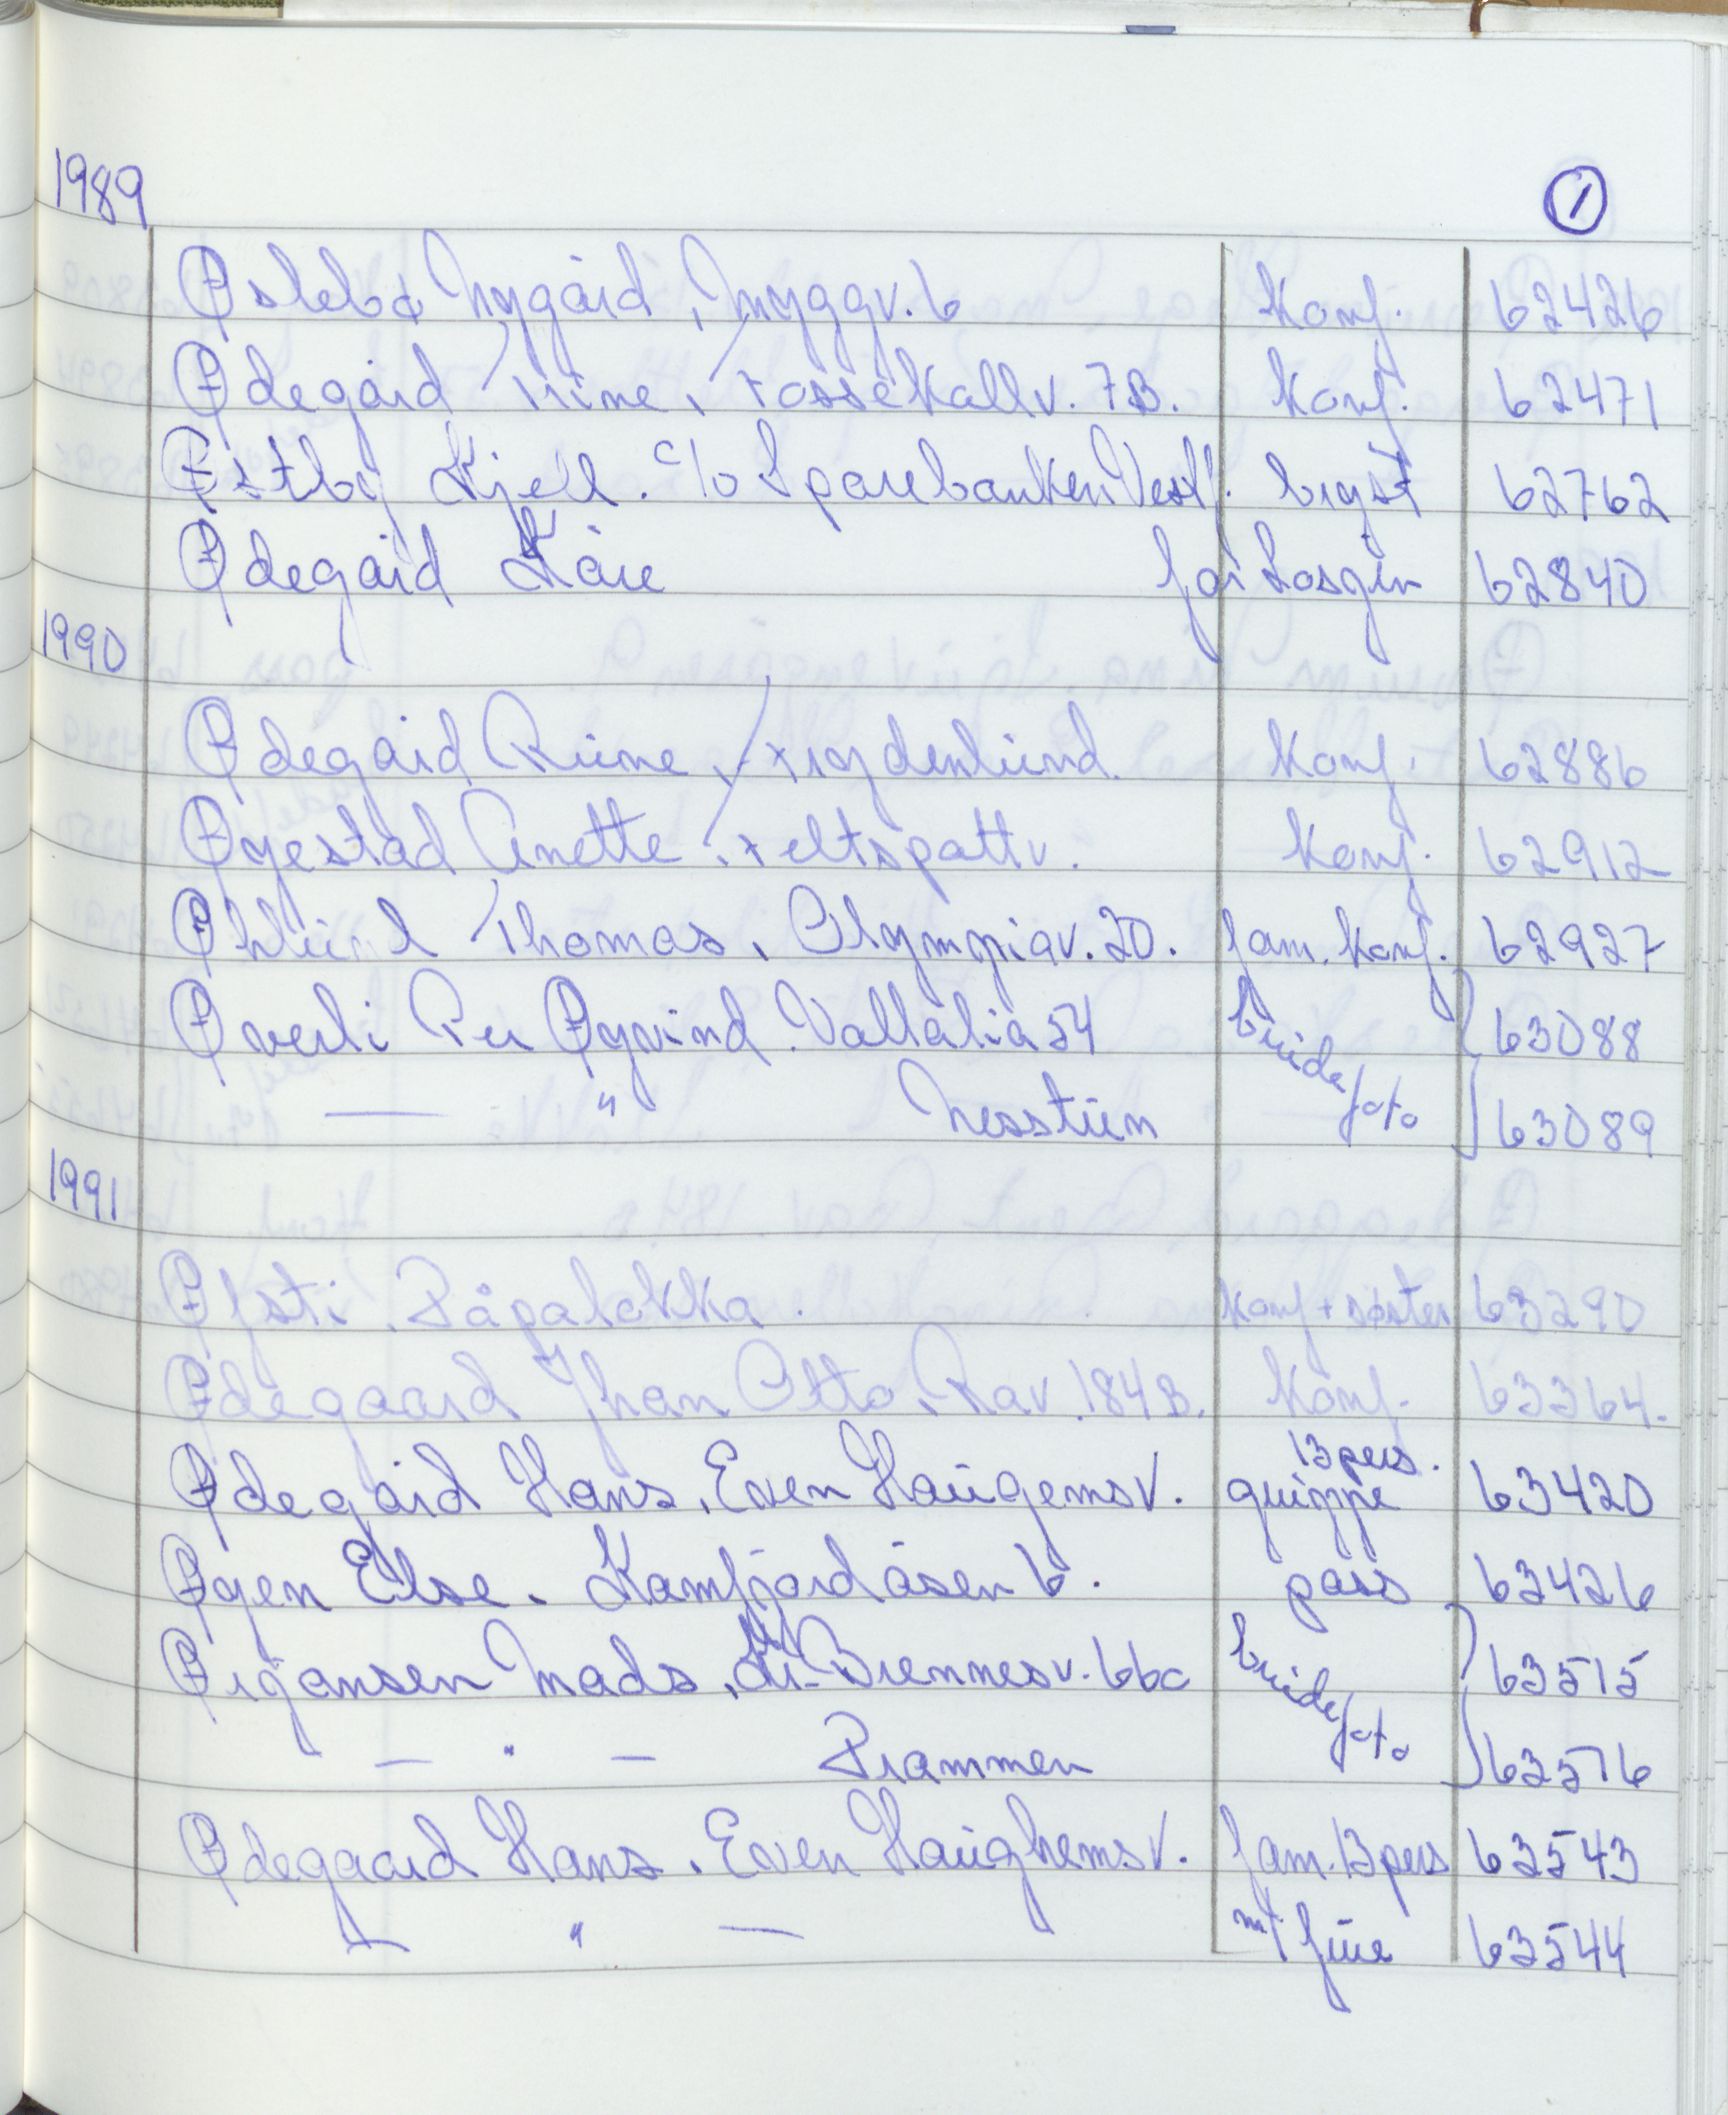 1989
①
Øslebø Nygård, Myggv. 6 Konf. 62426
Ødegård Trine, Fossekallv. 7B. Konf. 62471
Østby Kjell. c/o Sparebanken Vestf. bryst 62762
Ødegård Kåre 62840
1990
Ødegård Rune, Frydenlund. Konf. 62886
Øyestad Anette. Feltspattv. Konf. 62912
Thomas, Olympiav. 20. fam. Konf. 62927
Øverli Per Øyvind. Vallalia 54 brude 63088
— " Nesstun foto 63089
1991
Øfsti. Påpaløkka. Konf + søster 63290
Ødegaard Jhan Otto, Rav. 184B. Konf. 63364.
13 pers.
Ødegård Hans, Even Haugemsv. gruppe 63420
Øyen Else. Kamfjordåsen 6. pass 63426
Ørjansen Mads, Brennesv. 66c brude 63515
— " — Prammen foto 63516
Ødegaard Hans. Even Haughemsv. fam. 13 pers 63543
— " — m/ frue 63544